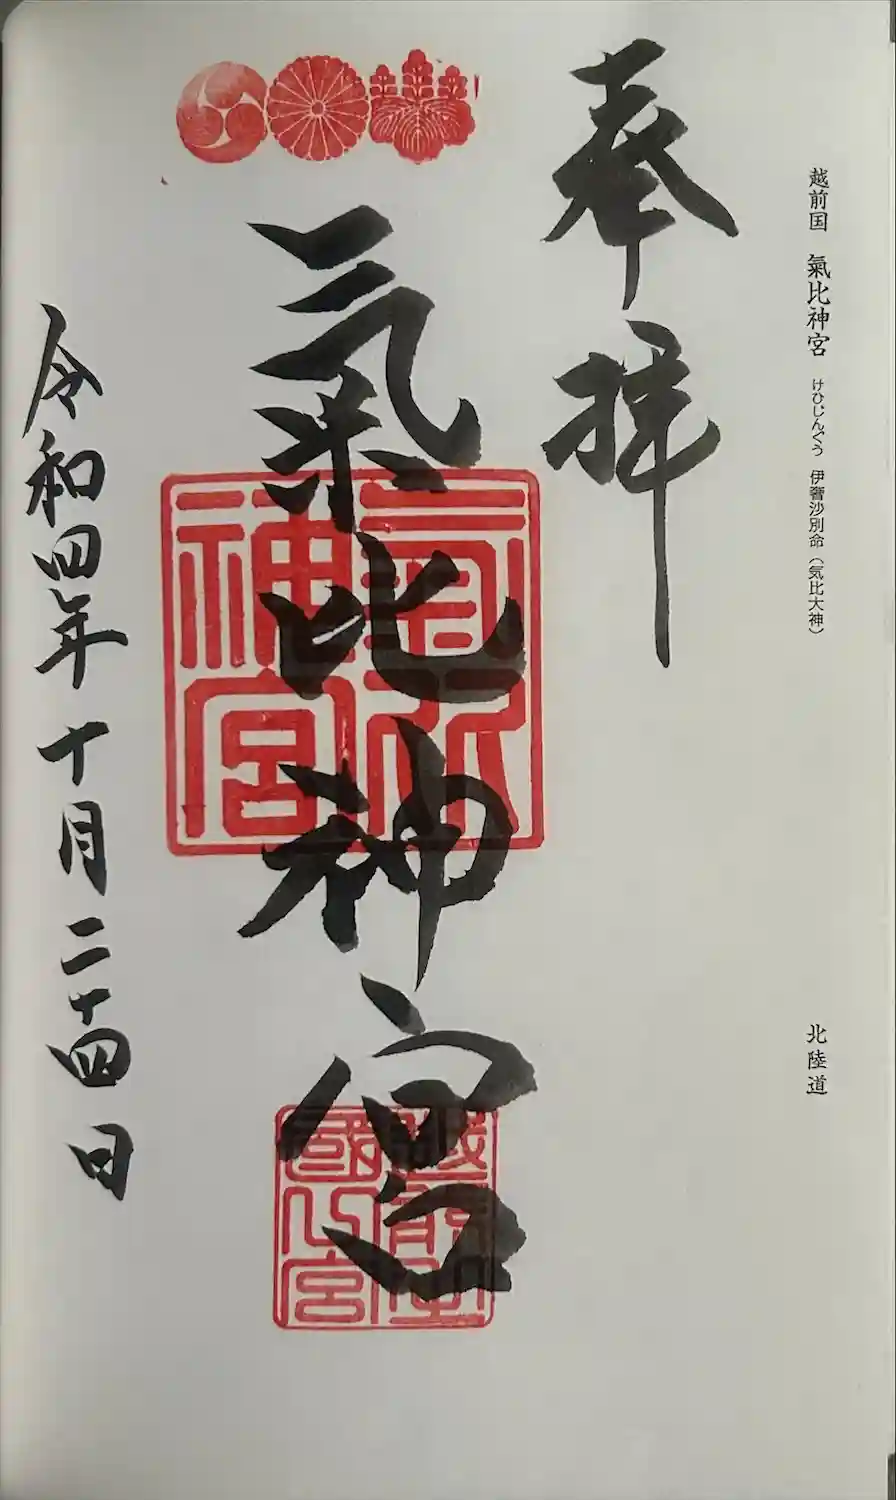 越前国 氣比神宮 けひじんぐう 伊奢沙別命（気比大神）
北陸道
奉拝
氣比神宮
氣比神宮
令和四年十月二十四日